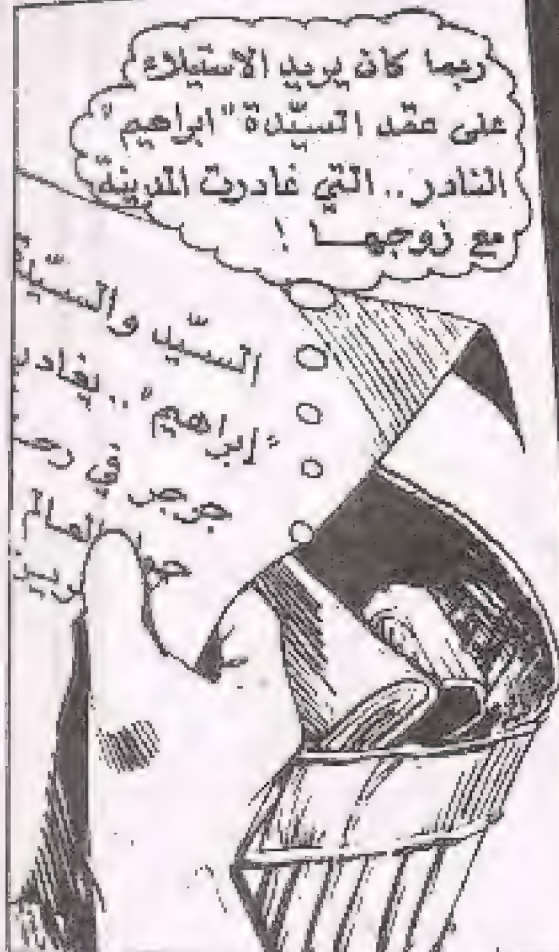 ربما كان يريد الاستيلاء
على عقد السيّدة "ابراهيم"
النادر.. التي غادرت المدينة
مع زوجها !
السيّد والسيّدة
"إبراهيم".. يغادر
جرجر في رحـ
العالم